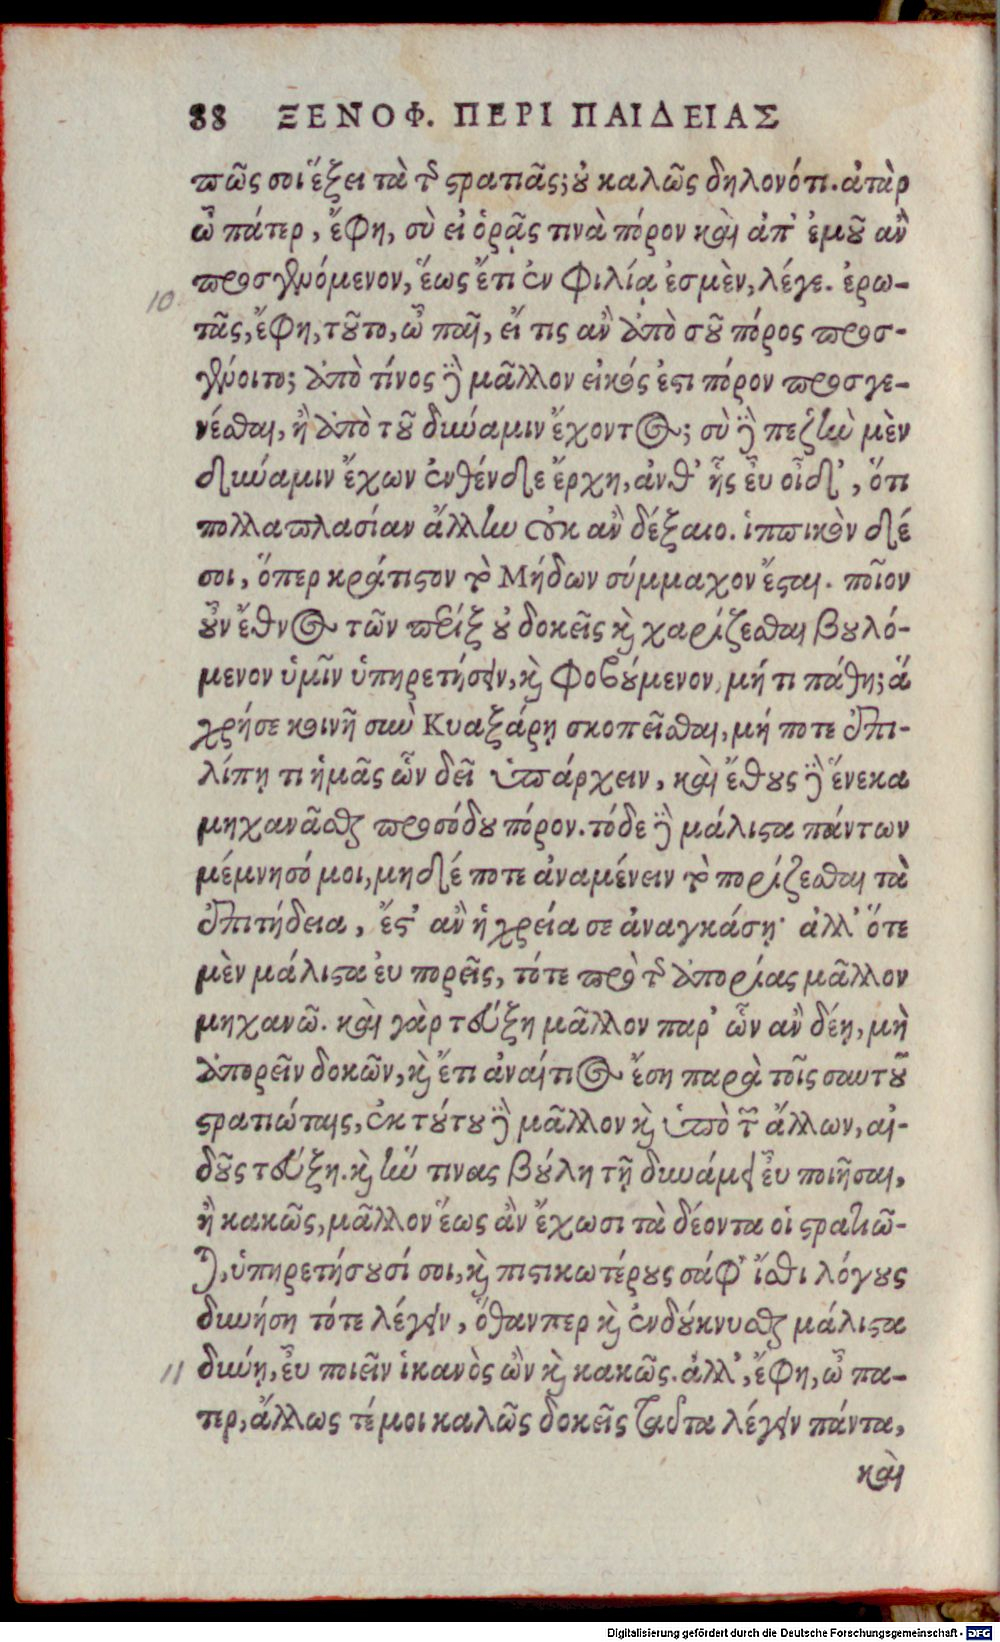 88 ΞΕΝΟΦ. ΠΕΡΙ ΠΑΙΔΕΙΑΣ
πῶς σοι ἕξει τὰ τ῀ ϛρατιᾶς; ȣ̓ καλῶς δηλονότι. ἀτὰρ
ὦ πάτερ, ἔφη, σὺ εἰ ὁρᾷς τινὰ πόρον καὶ ἀπ' ἐμȣ͂ ἂν
προσγενόμενον, ἕως ἔτι ἐν φιλίᾳ ἐσμὲν, λέγε. ἐρω-
10 τᾶς, ἔφη, τȣ͂το, ὦ παῖ, εἴ τις ἂν ἀπὸ σȣ͂ πόρος προσ-
γένοιτο; ἀπὸ τίνος ἢ μᾶλλον εἰκός ἐϛι πόρον προσγε-
νέσθαι, ἢ ἀπὸ τȣ͂ δύναμιν ἔχοντος; σὺ ἢ πεζὴν μὲν
δύναμιν ἔχων ἐνθένδε ἔρχη, ἀνθ' ἧς εὖ οἶδ', ὅτι
πολλαπλασίαν ἄλλην οὐκ ἂν δέξαιο. ἱππικὸν δέ
σοι, ὅπερ κράτιϛον τὸ Μήδων σύμμαχον ἔϛαι. ποῖον
ȣ̓͂ν ἔθνος τῶν πέριξ ȣ̓ δοκεῖς κ̀ χαρίζεσθαι βȣλό-
μενον ὑμῖν ὑπηρετήσειν, κ̀ φοβȣ́μενον, μή τι πάθη; ἅ
χρή σε κοινῆ σὺν Κυαξάρῃ σκοπεῖσθαι, μή ποτε ἐπι-
λίπῃ τι ἡμᾶς ὧν δεῖ ὑπάρχειν, καὶ ἔθȣς ἢ ἕνεκα
μηχανᾶσθαι προσόδȣ πόρον. τόδε ἢ μάλιϛα πάντων
μέμνησό μοι, μηδέ ποτε ἀναμένειν τὸ πορίζεσθαι τὰ
ἐπιτήδεια, ἔϛ' ἂν ἡ χρεία σε ἀναγκάσῃ· ἀλλ' ὅτε
μὲν μάλιϛα εὐ πορεῖς, τότε πρὸ τ῀ ἀπορίας μᾶλλον
μηχανῶ. καὶ γὰρ τεύξη μᾶλλον παρ' ὧν ἂν δέῃ, μὴ
ἀπορεῖν δοκῶν, κ̀ ἔτι ἀναίτιος ἔση παρὰ τοῖς σαυτȣ͂
ϛρατιώταις, ἐκ τȣ́τȣ ἢ μᾶλλον κ̀ ὑπὸ τ῀ ἄλλων, αἰ-
δȣ͂ς τεύξη. κ̀ ἤν τινας βȣ́λη τῇ δυνάμει εὖ ποιῆσαι,
ἢ κακῶς, μᾶλλον ἕως ἂν ἔχωσι τὰ δέοντα οἱ ϛρατιῶ-
ται, ὑπηρετήσȣσί σοι, κ̀ πιϛικωτέρȣς σάφ' ἴσθι λόγȣς
δυνήση τότε λέγειν, ὅθανπερ κ̀ ἐνδȣ́κνυσθαι μάλιϛα
11 δύνῃ, εὖ ποιεῖν ἱκανὸς ὢν κ̀ κακῶς. ἀλλ', ἔφη, ὦ πά-
τερ, ἄλλως τέ μοι καλῶς δοκεῖς ταῦτα λέγειν πάντα,
καὶ
Digitalisierung gefördert durch die Deutsche Forschungsgemeinschaft - DFG